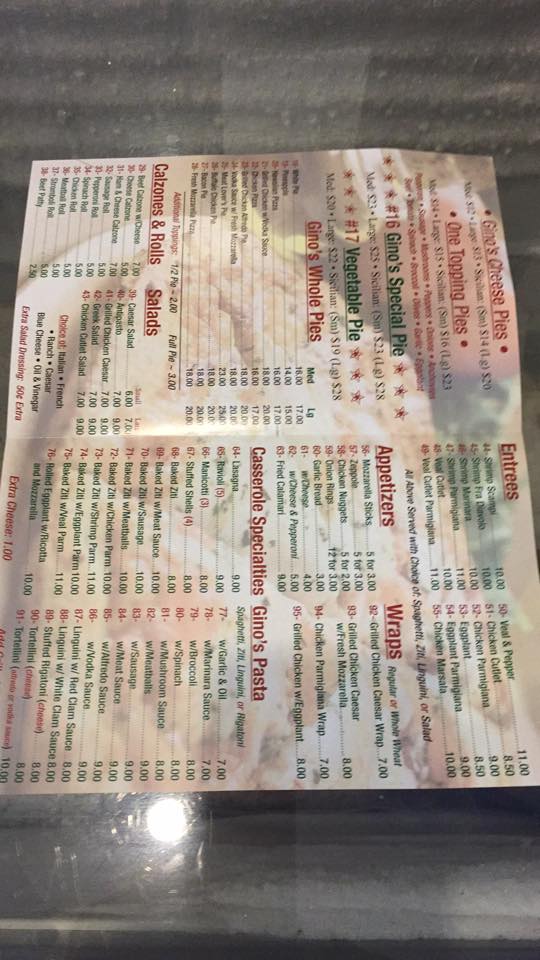 • Gino's Cheese Pies •
Med: $12 • Large: $15 • Sicilian: (Sm) $14 (Lg) $20
• One Topping Pies •
Med: $14 • Large: $15 • Sicilian: (Sm) $16 (Lg) $23
Pepperoni • Sausage • Mushrooms • Peppers • Onions • Anchovies
Beef • Tomato • Spinach • Broccoli • Olives • Garlic • Eggplant
★ ★ ★ #16 Gino's Special Pie ★ ★ ★
Med: $21 • Large: $25 • Sicilian: (Sm) $23 (Lg) $28
★ ★ ★ #17 Vegetable Pie ★ ★ ★
Med: $20 • Large: $22 • Sicilian: (Sm) $19 (Lg) $28
Gino's Whole Pies
Med Lg
18- White Pie 16.00 17.00
19- Pineapple 14.00 15.00
20- Hawaiian Pizza 16.00 17.00
21- Grilled Chicken w/Vodka Sauce 18.00 20.00
22- Chicken Pizza 16.00 17.00
23- Grilled Chicken Alfredo Pie 18.00 20.00
24- Vodka Sauce w/ Fresh Mozzarella 18.00 20.00
25- Meat Lover's Pie 23.00 25.00
26- Buffalo Chicken Pie 18.00 20.00
27- Bacon Pie 18.00 20.00
28- Fresh Mozzarella Pizza 18.00 20.00
Additional Toppings: 1/2 Pie ~ 2.00 Full Pie ~ 3.00
Calzones & Rolls
29- Beef Calzone w/Cheese 7.00
30- Cheese Calzone 5.00
31- Ham & Cheese Calzone 7.00
32- Sausage Roll 5.00
33- Pepperoni Roll 5.00
34- Spinach Roll 5.00
35- Chicken Roll 5.00
36- Meatball Roll 5.00
37- Stromboli Roll 5.00
38- Beef Patty 2.50
Salads
Small Lg
39- Caesar Salad 6.00 7.00
40- Antipasto 7.00 9.00
41- Grilled Chicken Caesar 7.00 9.00
42- Greek Salad 7.00 9.00
43- Chicken Cutlet Salad 7.00 9.00
Choice of: Italian • French
• Ranch • Caesar
Blue Cheese • Oil & Vinegar
Extra Salad Dressing: 50¢ Extra
Entrees
44- Shrimp Scampi 10.00
45- Shrimp Fra Diavolo 10.00
46- Shrimp Marinara 10.00
47- Shrimp Parmigiana 11.00
48- Veal Cutlet 10.00
49- Veal Cutlet Parmigiana 11.00
50- Veal & Pepper 11.00
51- Chicken Cutlet 8.50
52- Chicken Parmigiana 9.00
53- Eggplant 8.50
54- Eggplant Parmigiana 9.00
55- Chicken Marsala 10.00
All Above Served with Choice of: Spaghetti, Ziti, Linguini, or Salad
Appetizers
56- Mozzarella Sticks 5 for 3.00
57- Zeppole 5 for 3.00
58- Chicken Nuggets 5 for 2.00
59- Onion Rings 12 for 3.00
60- Garlic Bread 3.00
61- w/Cheese 4.00
62- w/Cheese & Pepperoni 5.00
63- Fried Calamari 9.00
Wraps Regular or Whole Wheat
92- Grilled Chicken Caesar Wrap 7.00
93- Grilled Chicken Caesar
w/Fresh Mozzarella 8.00
94- Chicken Parmigiana Wrap 7.00
95- Grilled Chicken w/Eggplant 8.00
Casserole Specialties
64- Lasagna 9.00
65- Ravioli (5) 9.00
66- Manicotti (3) 8.00
67- Stuffed Shells (4) 8.00
68- Baked Ziti 8.00
69- Baked Ziti w/Meat Sauce 10.00
70- Baked Ziti w/Sausage 10.00
71- Baked Ziti w/Meatballs 10.00
72- Baked Ziti w/Chicken Parm 10.00
73- Baked Ziti w/Shrimp Parm 11.00
74- Baked Ziti w/Eggplant Parm 10.00
75- Baked Ziti w/Veal Parm 11.00
76- Rolled Eggplant w/Ricotta
and Mozzarella 10.00
Extra Cheese: 1.00
Gino's Pasta
Spaghetti, Ziti, Linguini, or Rigatoni
77- w/Garlic & Oil 7.00
78- w/Marinara Sauce 7.00
79- w/Broccoli 8.00
80- w/Spinach 8.00
81- w/Mushroom Sauce 8.00
82- w/Meatballs 8.00
83- w/Sausage 9.00
84- w/Meat Sauce 9.00
85- w/Alfredo Sauce 9.00
86- w/Vodka Sauce 9.00
87- Linguini w/ Red Clam Sauce 8.00
88- Linguini w/ White Clam Sauce 8.00
89- Stuffed Rigatoni (cheese) 8.00
90- Tortellini (cheese) 8.00
91- Tortellini (alfredo or vodka sauce) 10.00